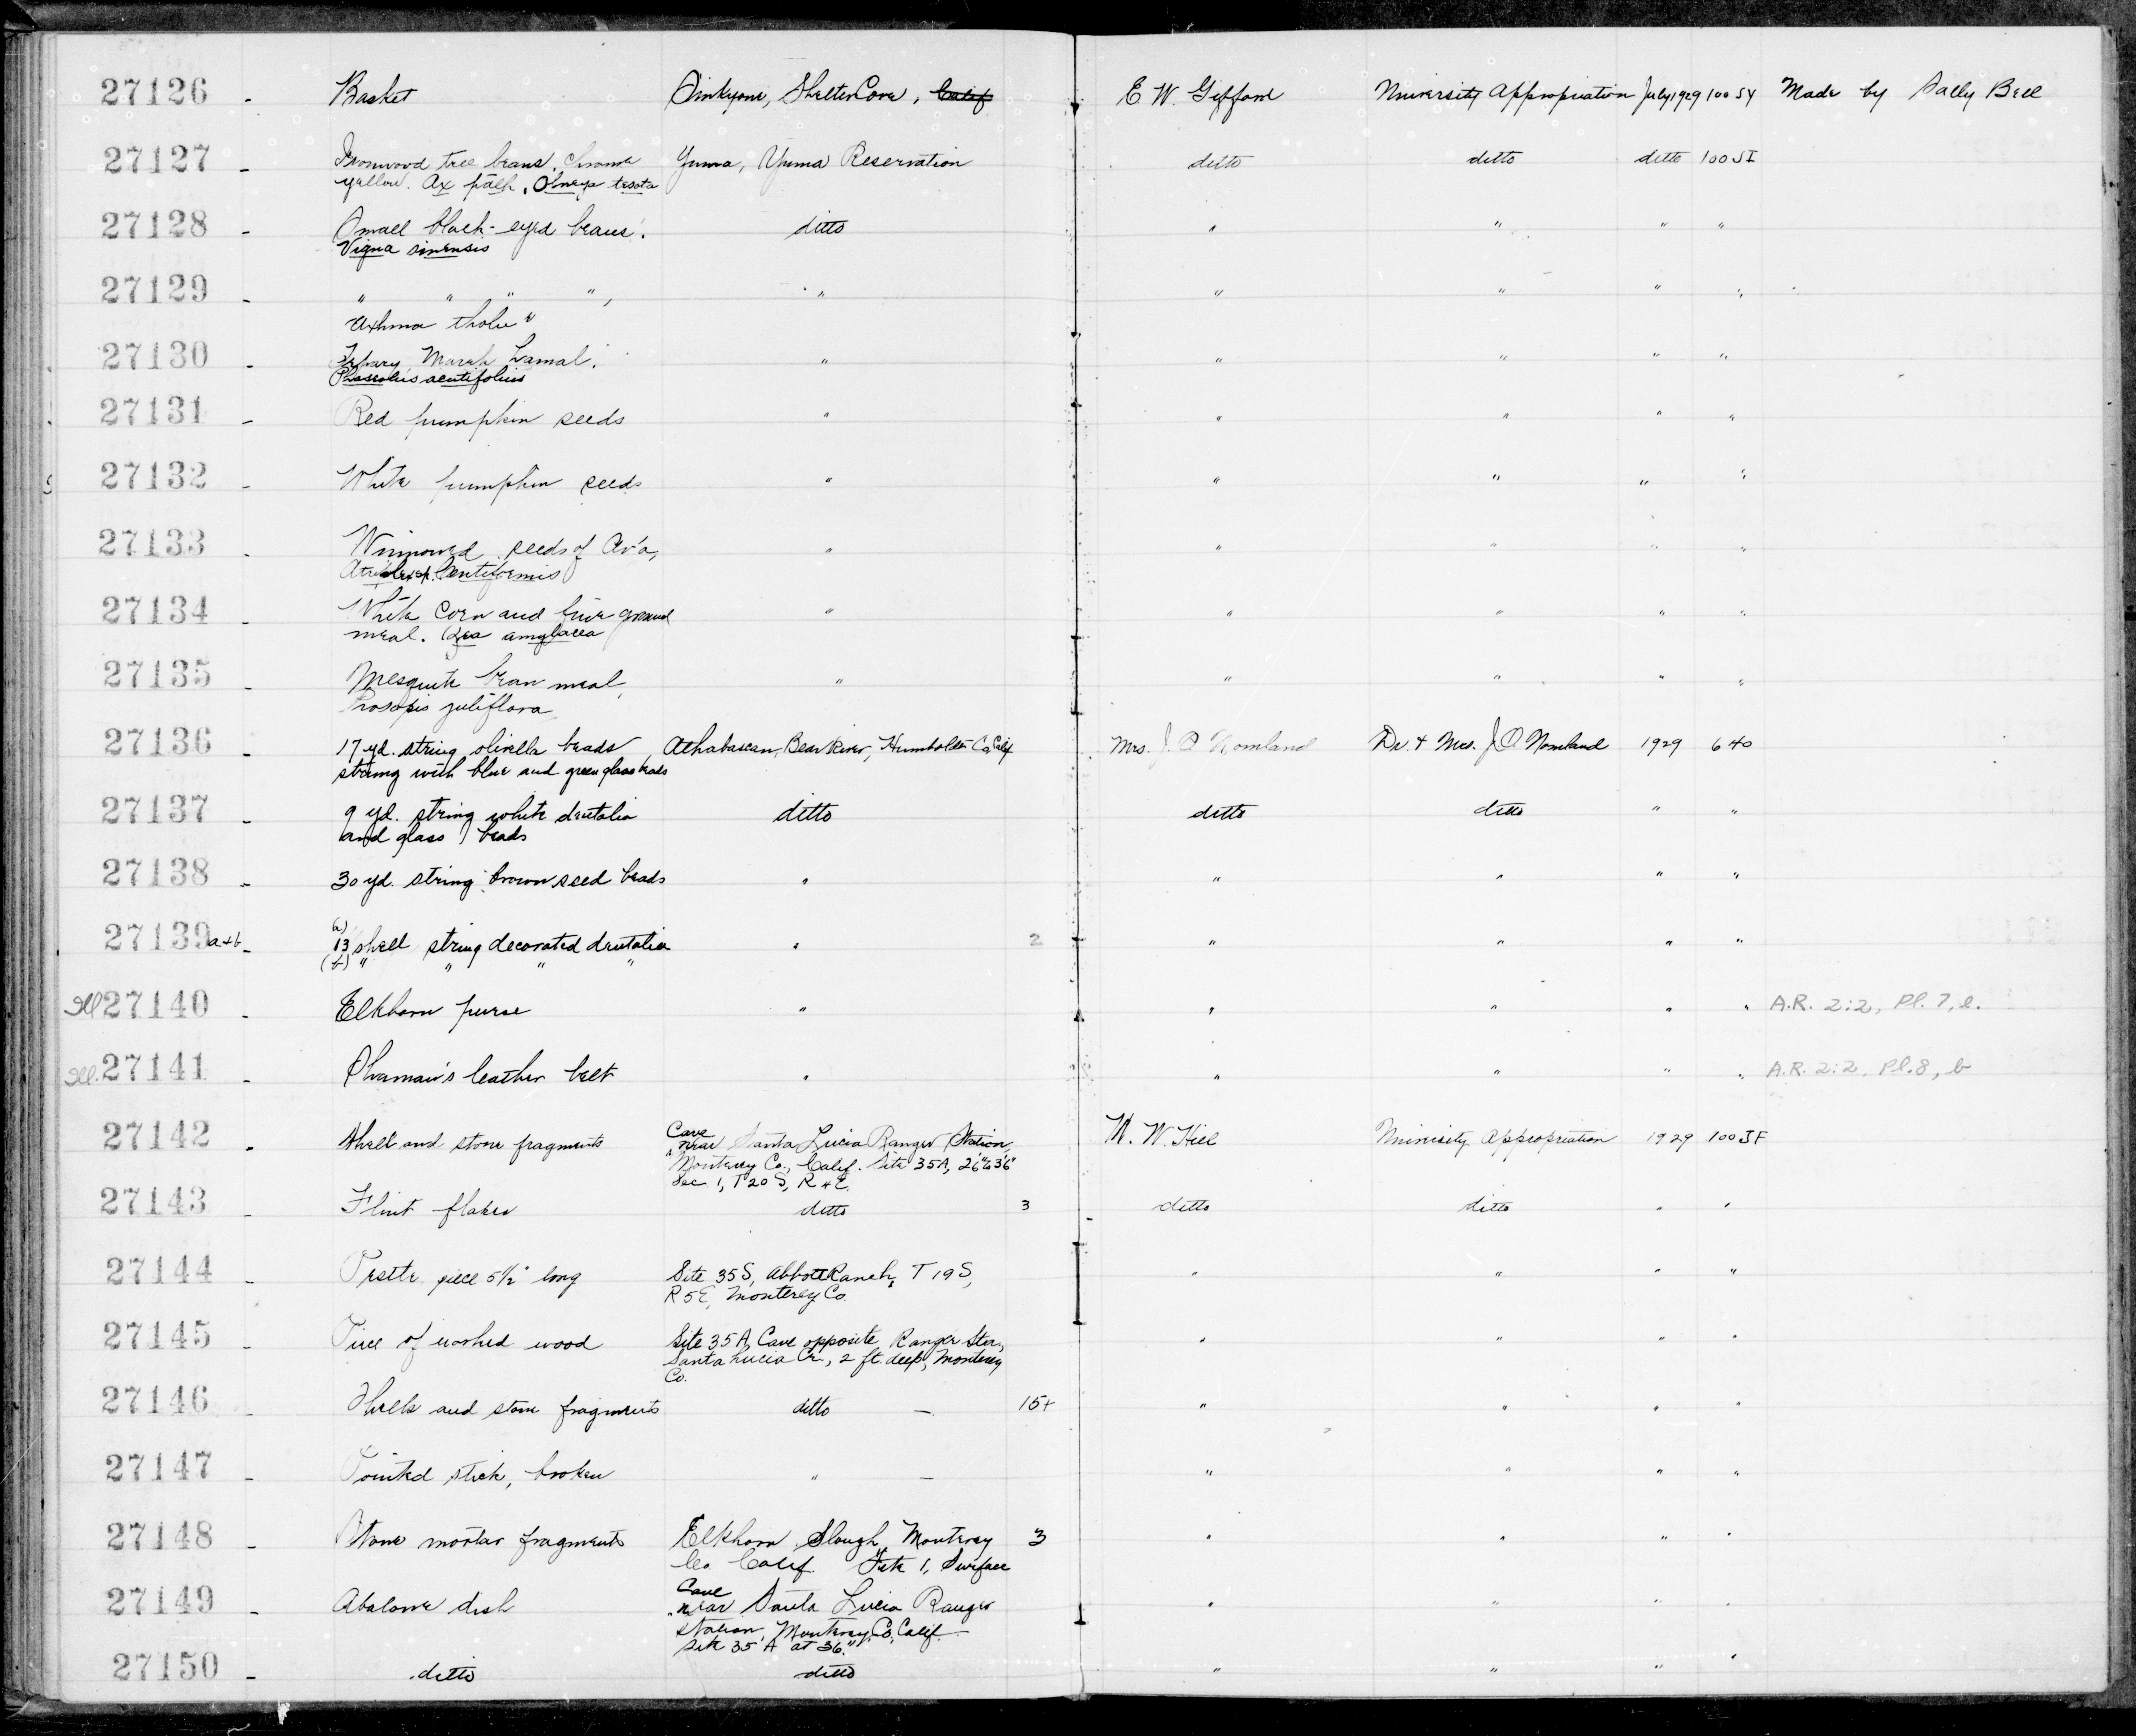 27126 - Basket Sinkyone, Shelter Cove, Calif E. W. Gifford University Appropriation July 1929 100 SY Made by Sally Bell
27127 - Ironwood tree beans, chrome Yuma, Yuma Reservation ditto ditto ditto 100 SI
yellow. Ax palk, Olneya tesota
27128 - Small black-eyed beans. ditto " " " "
Vigna sinensis
27129 - " " " ", " " " " "
axhma
27130 - Tepary " " " " "
Phaseolus acutifolius
27131 - Red pumpkin seeds " " " " "
27132 - White pumpkin seeds " " " " "
27133 - Winnowed seeds of Av'a, " " " " "
Atriplex lentiformis
27134 - White corn and fine ground " " " " "
meal. Zea amylacea
27135 - Mesquite bean meal, " " " " "
Prosopis juliflora
27136 - 17 yd. string olivella beads Athabascan, Bear River, Humboldt Co, Calif Mrs. J. O Nomland Dr. & Mrs. J O Nomland 1929 640
strung with blue and green glass beads
27137 - 9 yd. string white dentalia ditto ditto ditto " "
and glass beads
27138 - 30 yd. string brown seed beads " " " " "
27139 a+b - (a) 13 shell string decorated dentalia " 2 " " " "
(b) " " " "
Ill 27140 - Elkhorn purse " " " " " A.R. 2:2, Pl. 7, e.
Ill. 27141 - Shaman's leather belt " " " " " A.R. 2:2, Pl. 8, b
27142 - Shell and stone fragments Cave near Santa Lucia Ranger Station, W. W. Hill University Appropriation 1929 100 JF
Monterey Co., Calif. Site 35A, 2'6" to 3'6"
Sec 1, T 20 S, R 4 E.
27143 - Flint flakes ditto 3 ditto ditto " "
27144 - Pestle piece 5 1/2" long Site 35 S, Abbott Ranch, T 19 S, " " " "
R 5 E, Monterey Co.
27145 - Piece of worked wood Site 35 A, Cave opposite Ranger Sta., " " " "
Santa Lucia Cr., 2 ft. deep, Monterey
Co.
27146 - Shells and stone fragments ditto — 15+ " " " "
27147 - Pointed stick, broken " — " " " "
27148 - Stone mortar fragments Elkhorn Slough, Monterey 3 " " " "
Co Calif. Site 1, Surface
27149 - Abalone dish Cave near Santa Lucia Ranger " " " "
Station, Monterey Co, Calif.
Site 35 A at 36"
27150 - ditto ditto " " " "